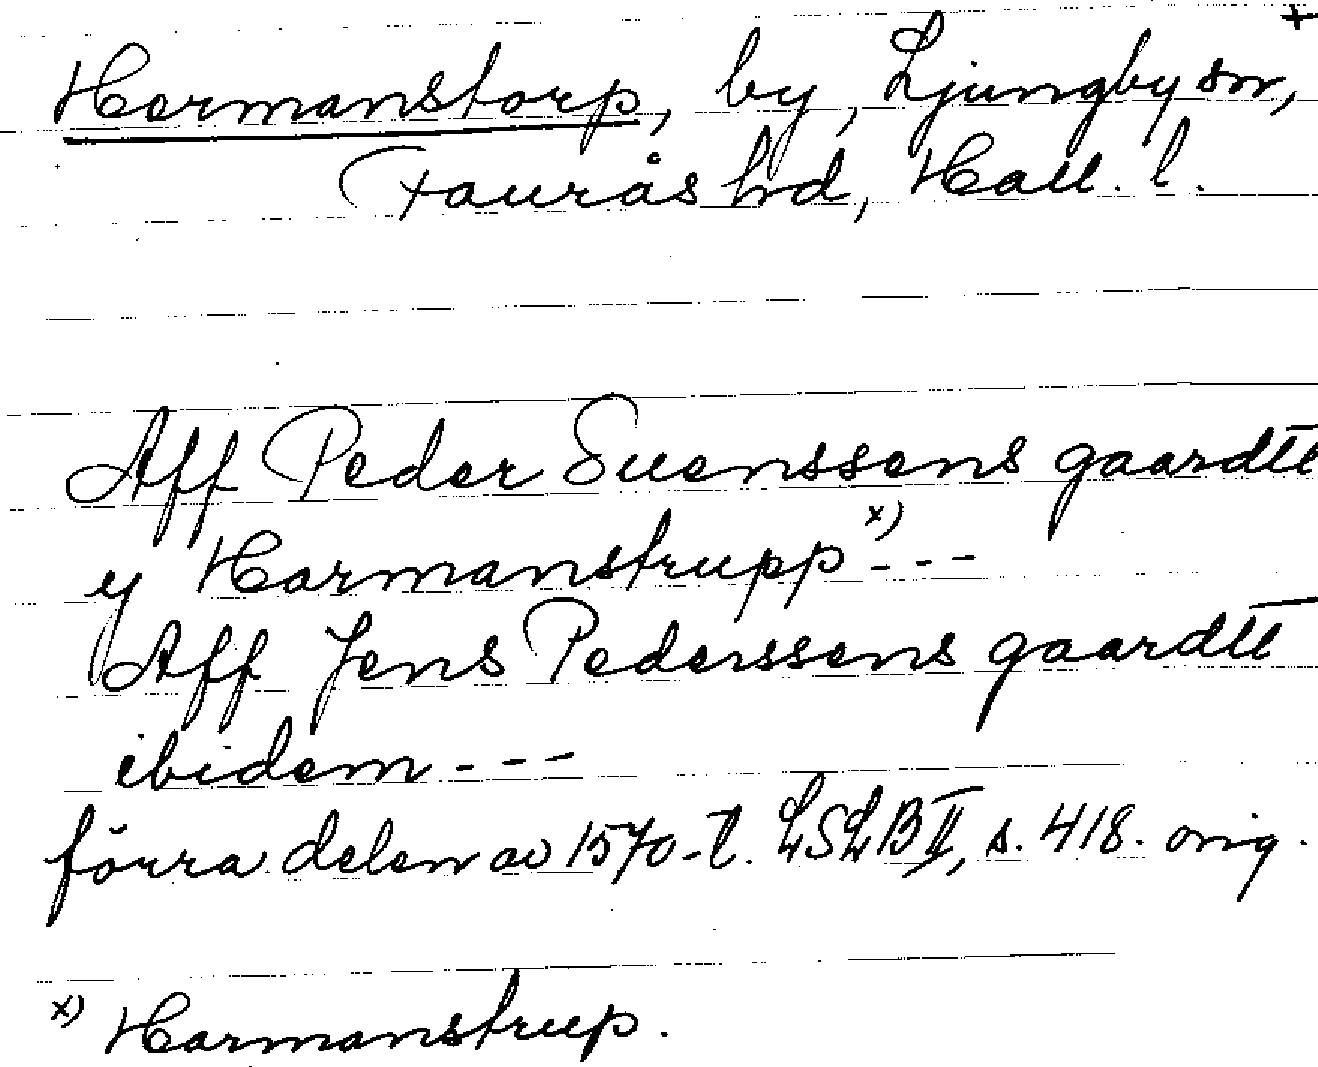 +
Hermanstorp, by, Ljungby sn,
Faurås hd, Hall. l.
Aff Peder Suenssens gaardtt
y Harmanstrupp x) - - -
Aff Jens Pederssens gaardtt
ibidem - - -
förra delen av 1570-t. LSLB II, s. 418. orig.
x) Harmanstrup.